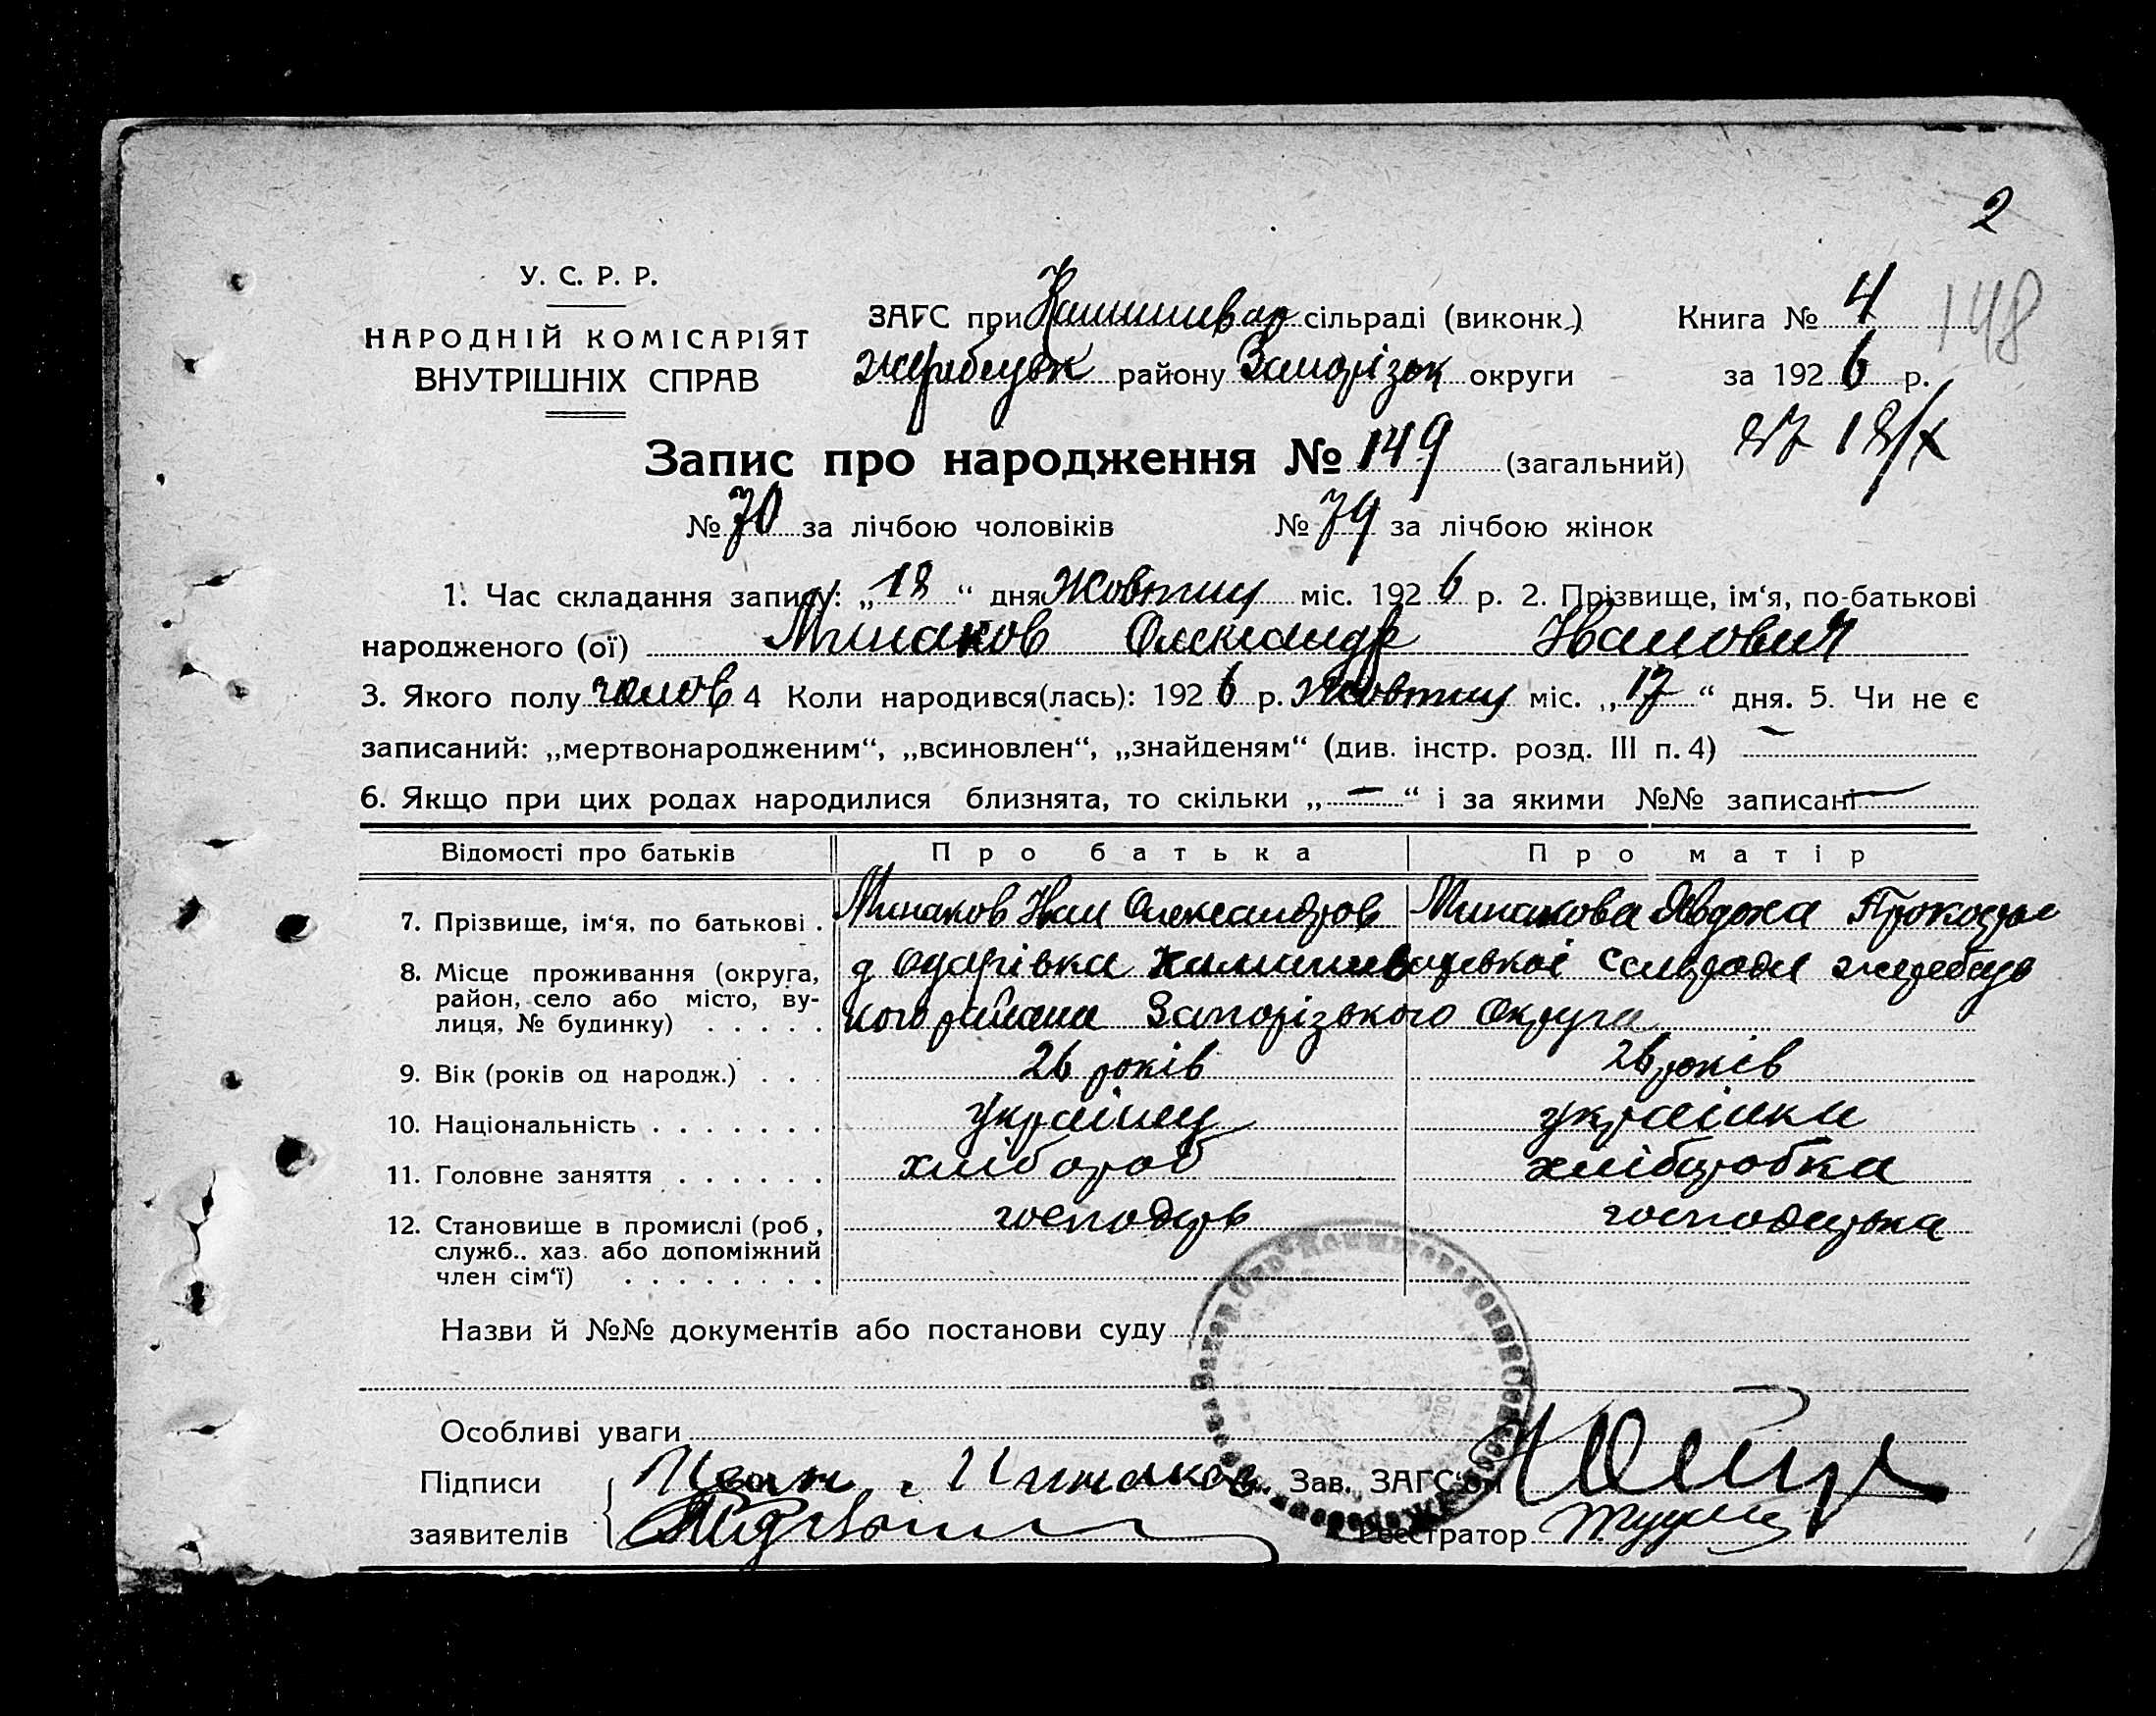 2
У. С. Р. Р.
НАРОДНІЙ КОМІСАРІЯТ
ВНУТРІШНІХ СПРАВ
ЗАГС при сільраді (виконк.)
Жеребецьк району Запорізьк округи
Книга № 4
148
за 1926 р.
Запис про народження № 149 (загальний)
№ 70 за лічбою чоловіків № 79 за лічбою жінок
1. Час складання запису: „18“ дня Жовтня міс. 1926 р. 2. Прізвище, ім‘я, по-батькові
народженого (ої) Минаков Олександр Іванович
3. Якого полу чолов 4 Коли народився(лась): 1926 р. Жовтня міс. „17“ дня. 5. Чи не є
записаний: „мертвонародженим“, „всиновлен“, „знайденям“ (див. інстр. розд. III п. 4) —
6. Якщо при цих родах народилися близнята, то скільки „—“ і за якими №№ записані —
Відомості про батьків Про батька Про матір
7. Прізвище, ім‘я, по батькові . Минаков Іван Олександров Минакова Явдоха
8. Місце проживання (округа, район, село або місто, вулиця, № будинку) . . . . .
Одарівка
кого района Запорізького Округа
9. Вік (років од народж.) . . . 26 років 26 років
10. Національність . . . . . . . українец українка
11. Головне заняття . . . . . . хлібороб хліборобка
12. Становище в промислі (роб, служб.. хаз. або допоміжний член сім‘ї) . . . . . . . . господарь господарька
Назви й №№ документів або постанови суду
Особливі уваги
Підписи заявителів Иван Минаков
Зав. ЗАГС‘ом
Реєстратор